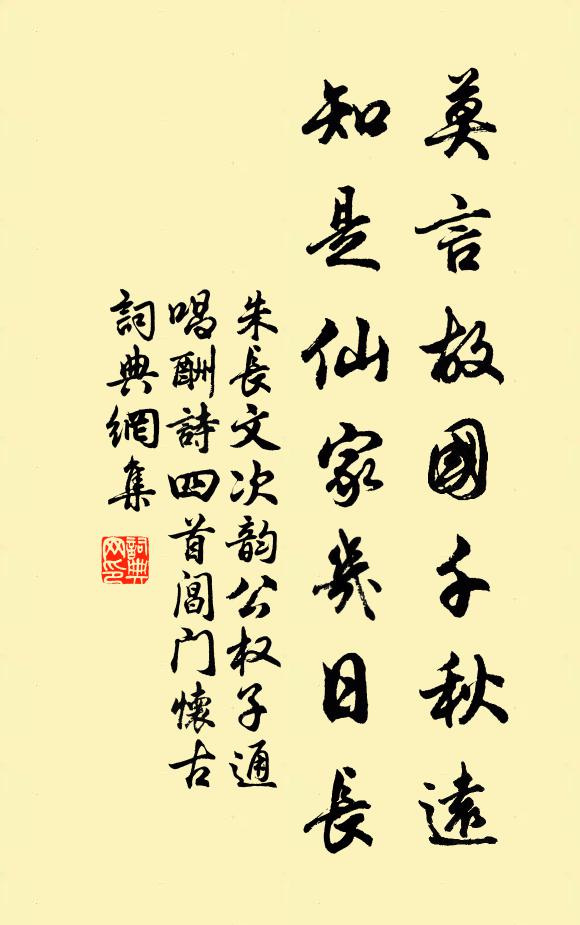 莫言故國千秋遠
知是仙家幾日長
朱長文次韵公权子通
唱酬詩四首閶门懷古
詞典網集
詞典
网印